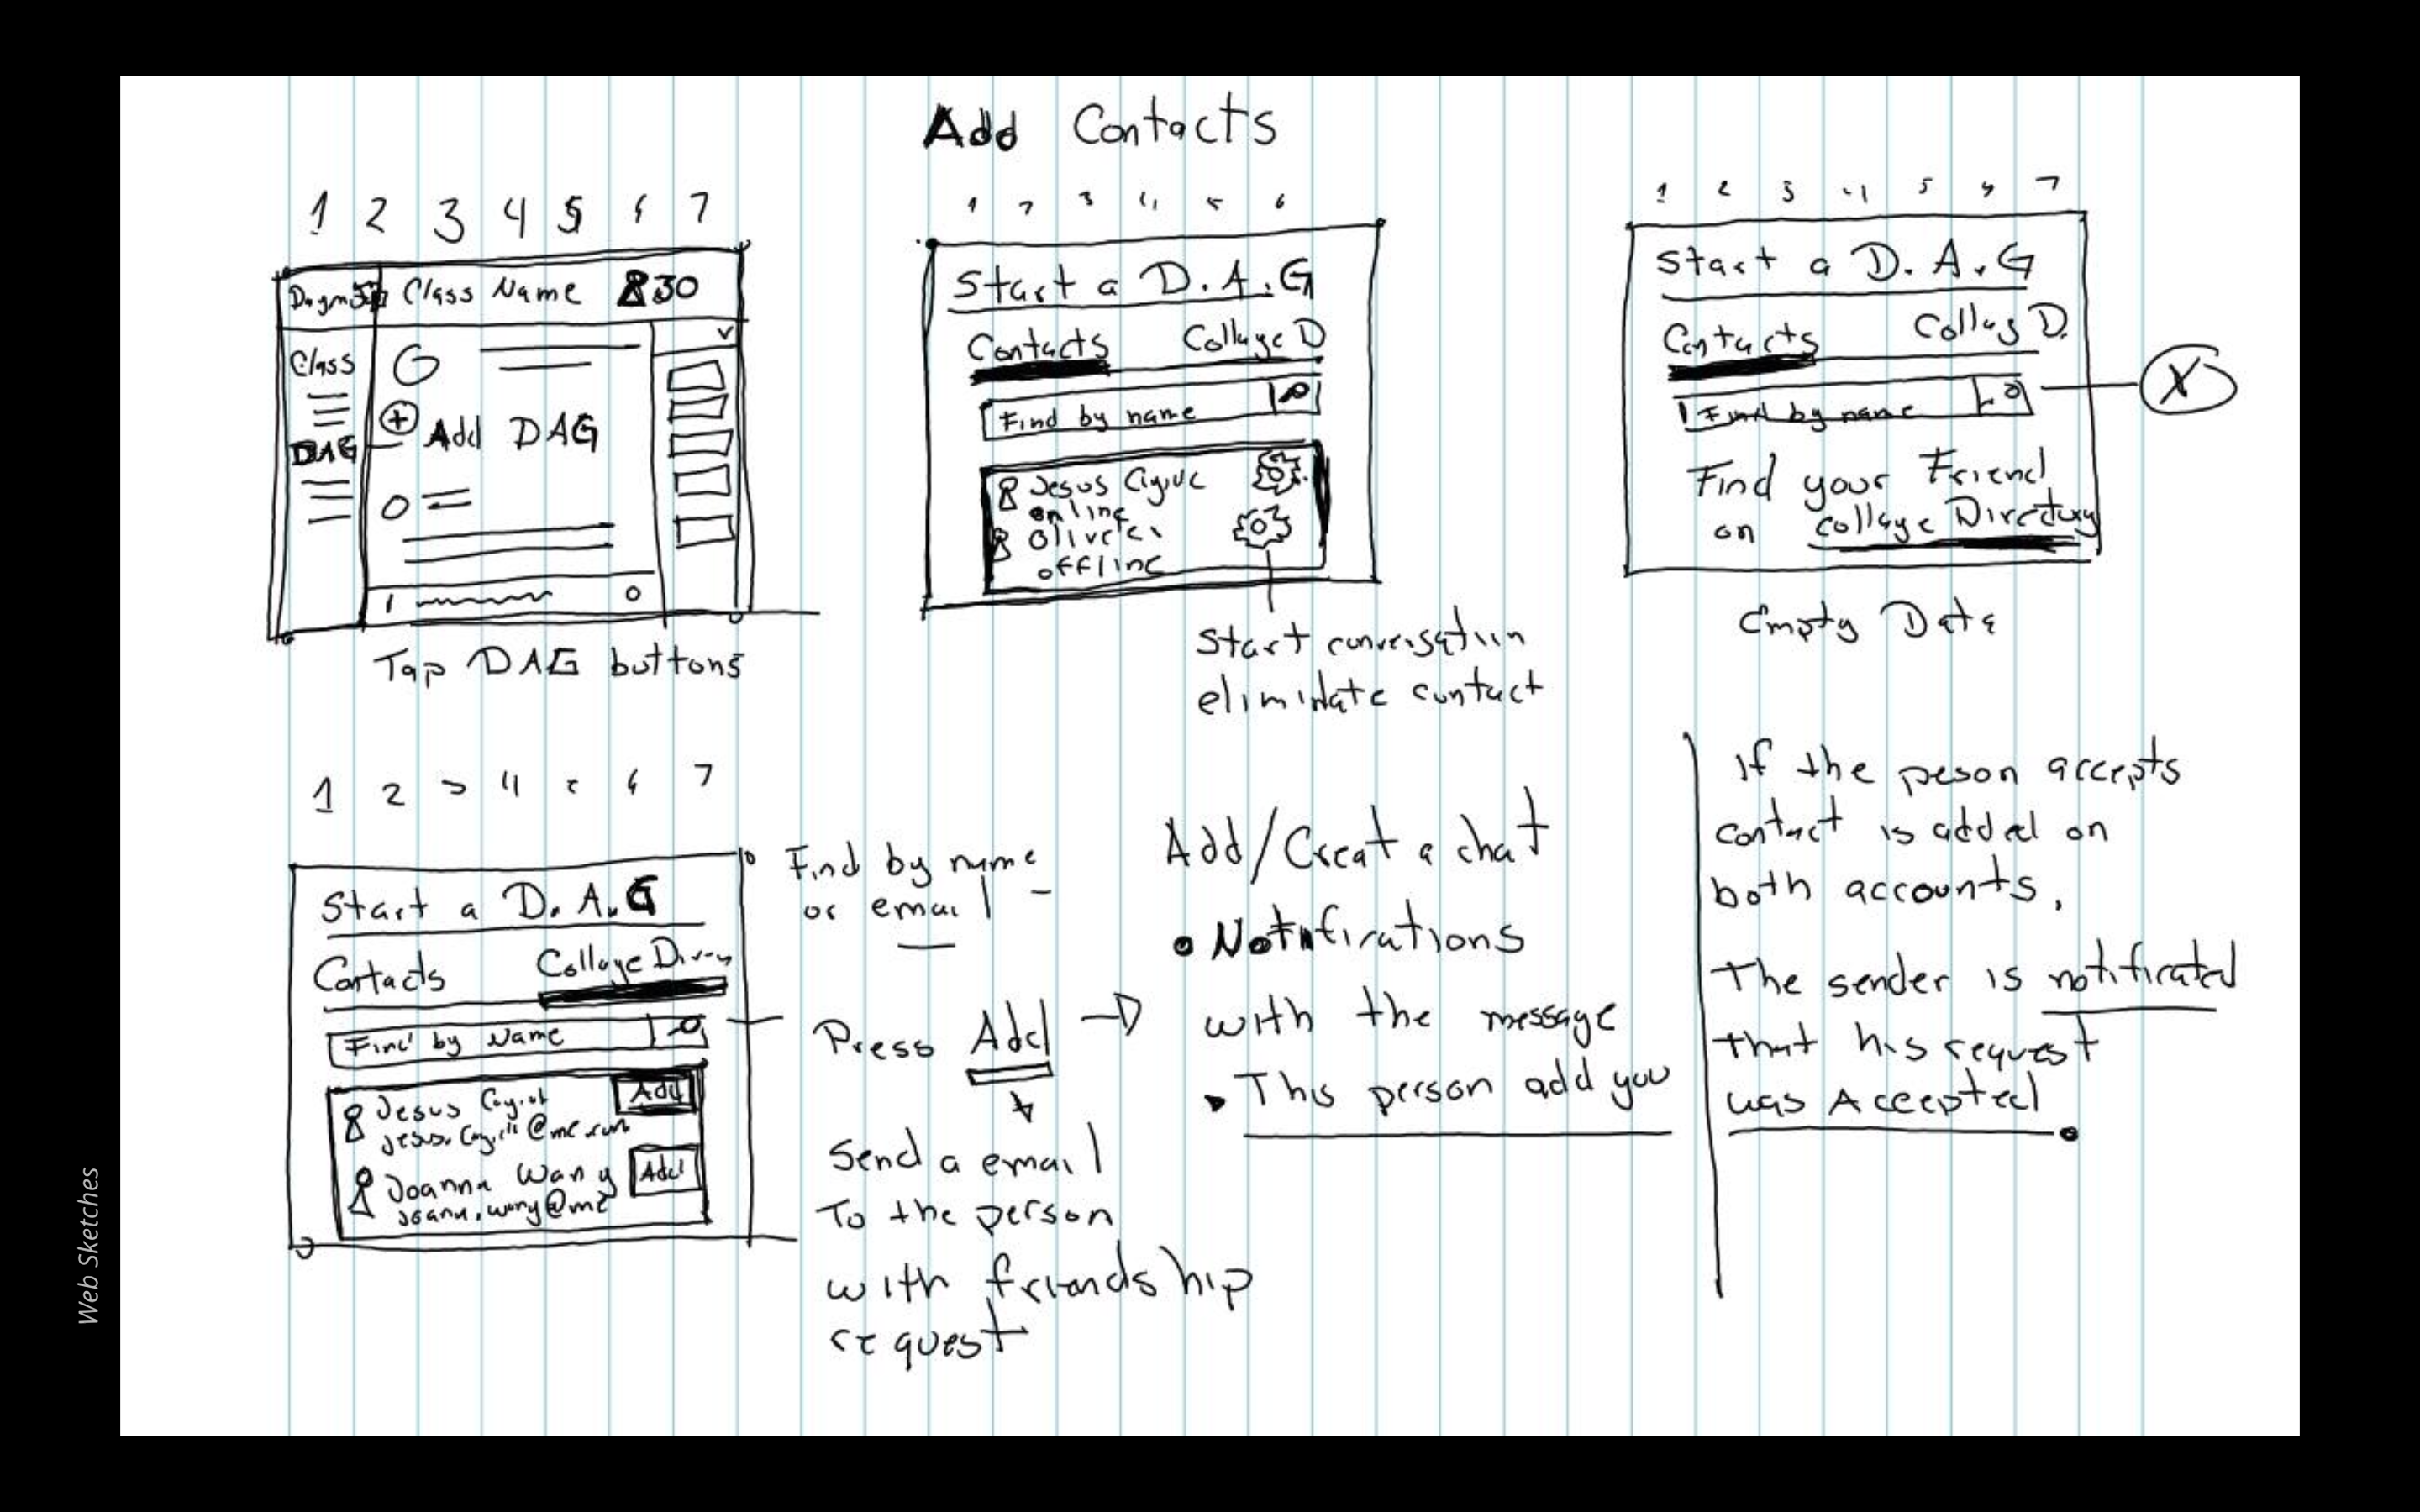 Add Contacts
1 2 3 4 5 6 7
Class Name 30
Class
Add DAG
DAG
Tap DAG buttons
1 2 3 4 5 6
Start a D.A.G
Contacts Collage D
Find by name
Jesus
online
offline
Start conversation
eliminate contact
1 2 3 4 5 6 7
Start a D.A.G
Contacts Collag D.
Find by name
X
Find your Friend
on Collage Directory
Empty Data
1 2 3 4 5 6 7
Start a D.A.G
Contacts Collage
Find by Name
Jesus
Add
Joanna Wang
Add
Find by name
or email
Press Add
Send a email
To the person
with friendship
request
Add/Creat a chat
Notifications
with the message
This person add you
If the peson accepts
contact is added on
both accounts,
The sender is notificated
that his request
was Accepted
Web Sketches